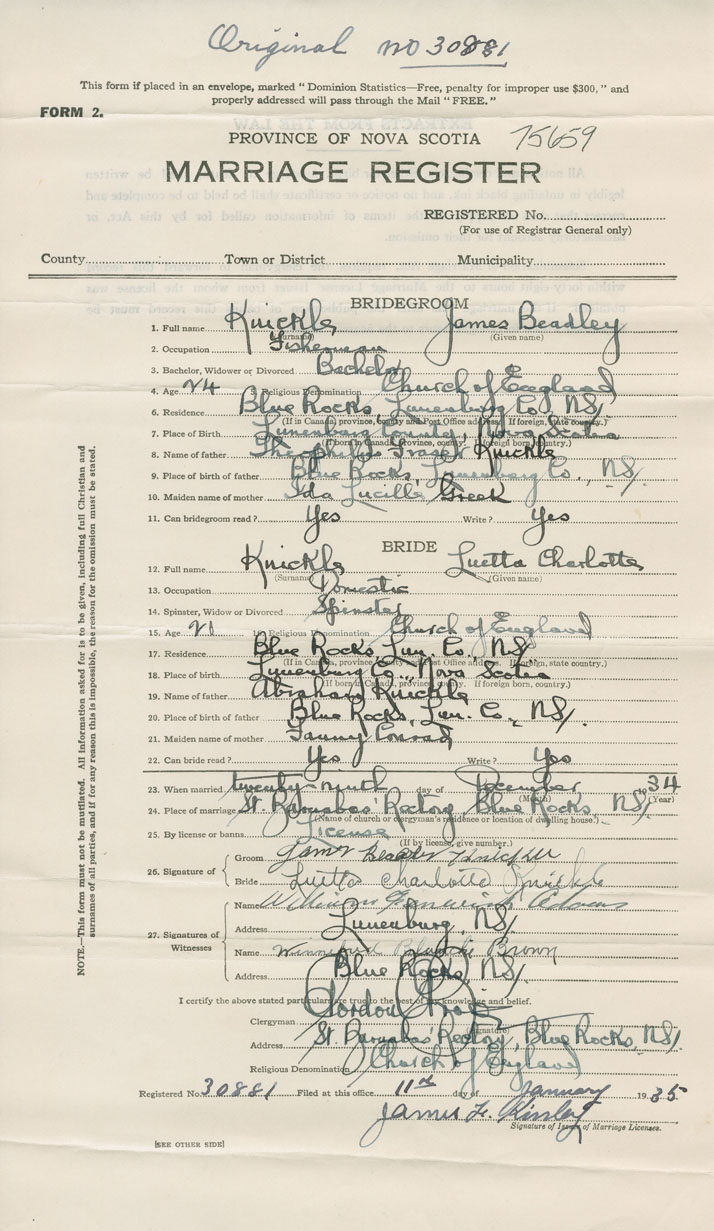 Original No 30881
This form if placed in an envelope, marked "Dominion Statistics—Free, penalty for improper use $300," and
properly addressed will pass through the Mail "FREE."
FORM 2.
PROVINCE OF NOVA SCOTIA 75659
MARRIAGE REGISTER
REGISTERED No.
(For use of Registrar General only)
County Town or District Municipality
BRIDEGROOM
1. Full name Knickle James Beadley
(Surname) (Given name)
2. Occupation Fisherman
3. Bachelor, Widower or Divorced Bachelor
4. Age 24 5. Religious Denomination Church of England
6. Residence Blue Rocks, Lunenburg Co, NS/
(If in Canada, province, county and Post Office address. If foreign, state country.)
7. Place of Birth Lunenburg County, Nova Scotia
(If born in Canada, province, county. If foreign born, country.)
8. Name of father Theophilus Fraser Knickle
9. Place of birth of father Blue Rocks, Lunenburg Co., NS/
10. Maiden name of mother Ida Lucille Greek
11. Can bridegroom read? Yes Write? Yes
BRIDE
12. Full name Knickle Luetta Charlotte
(Surname) (Given name)
13. Occupation Domestic
14. Spinster, Widow or Divorced Spinster
15. Age 21 16. Religious Denomination Church of England
17. Residence Blue Rocks, Lun. Co., NS/
(If in Canada, province, county and Post Office address. If foreign, state country.)
18. Place of birth Lunenburg Co., Nova Scotia
(If born in Canada, province, county. If foreign born, country.)
19. Name of father Abraham Knickle
20. Place of birth of father Blue Rocks, Lun. Co., NS/
21. Maiden name of mother Fanny Conrad
22. Can bride read? Yes Write? Yes
23. When married twenty-ninth day of December 1934
(Month) (Year)
24. Place of marriage St. Barnabas' Rectory, Blue Rocks, NS/
(Name of church or clergyman's residence or location of dwelling house.)
25. By license or banns License
(If by license, give number.)
26. Signature of
Groom James Beadley Knickle
Bride Luetta Charlotte Knickle
27. Signatures of Witnesses
Name William
Address Lunenburg, NS/
Name Winnifred Blanche Brown
Address Blue Rocks, NS/
I certify the above stated particulars are true to the best of my knowledge and belief.
Clergyman Gordon
(Signature)
Address St. Barnabas' Rectory, Blue Rocks, NS/
Religious Denomination Church of England
Registered No. 30881 Filed at this office 11th day of January 1935
James F. Kinley
Signature of Issuer of Marriage Licenses.
[SEE OTHER SIDE]
NOTE.—This form must not be mutilated. All information asked for is to be given, including full Christian and
surnames of all parties, and if for any reason this is impossible, the reason for the omission must be stated.